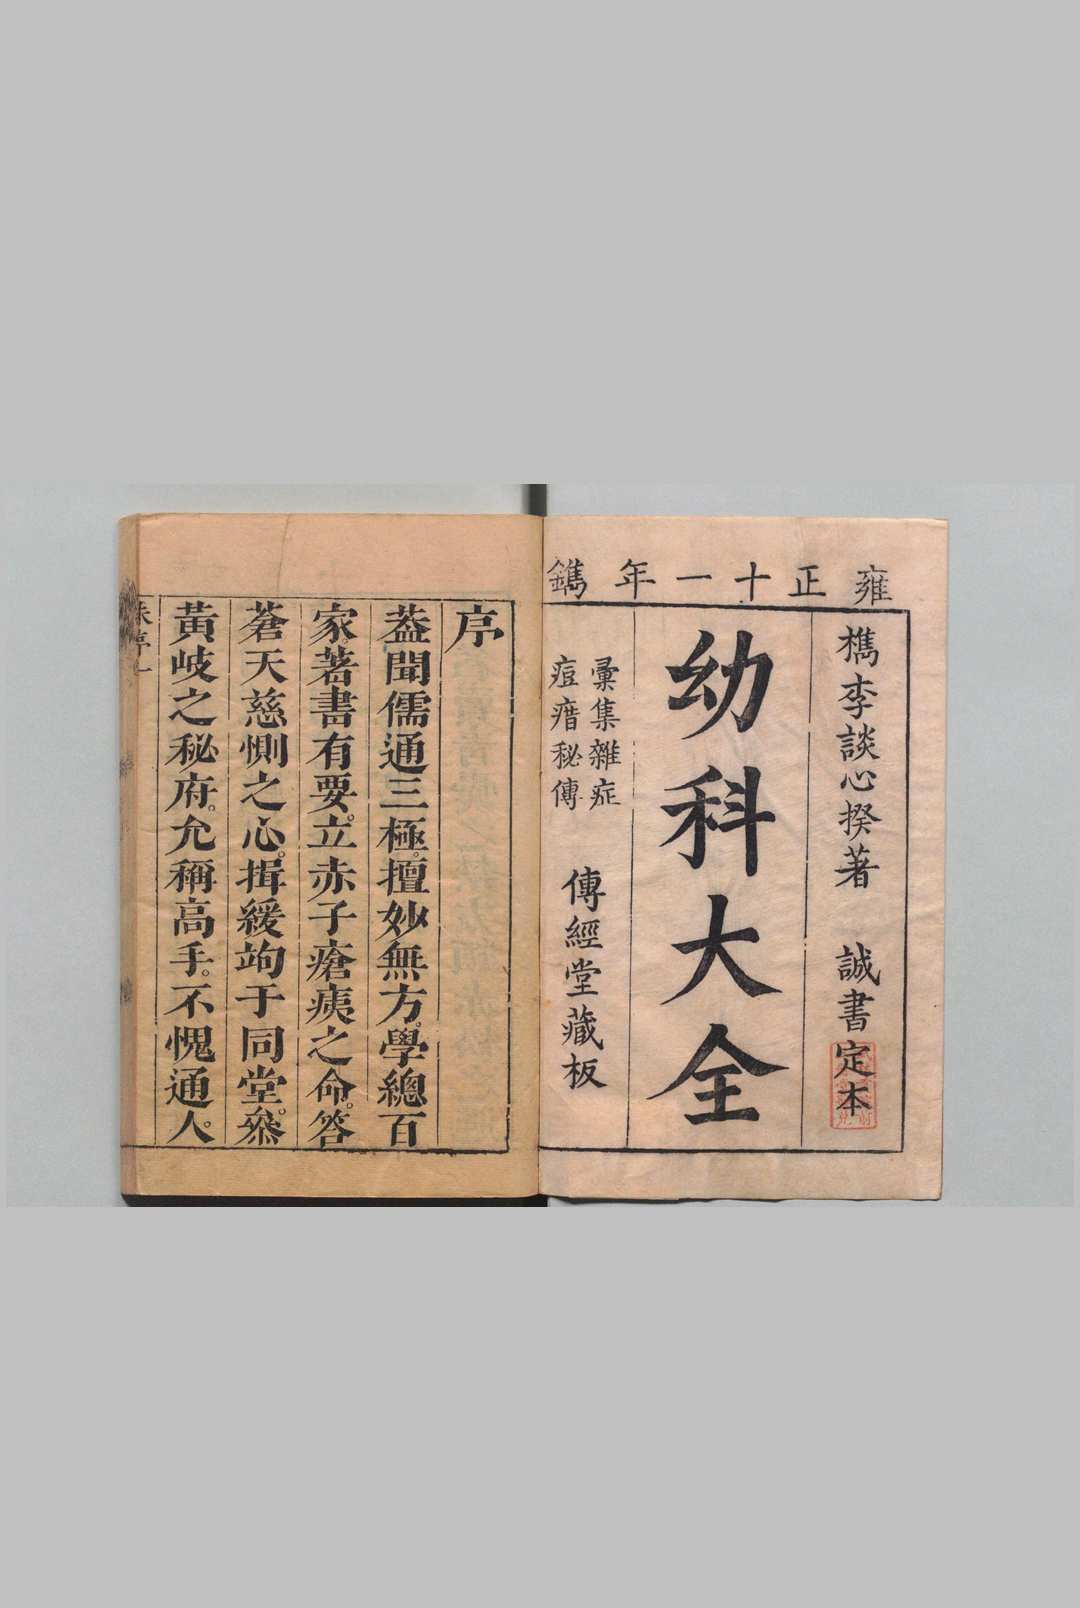 雍正十一年鐫
檇李談心揆著 誠書定本
幼科大全
彙集雜症
痘㾗秘傳
傳經堂藏板
序
葢聞儒通三極。擅妙無方。學總百
家。著書有要。立赤子瘡痍之命。答
蒼天慈惻之心。揖緩竘于同堂。叅
黃岐之秘府。允稱高手。不愧通人。
朱序 一